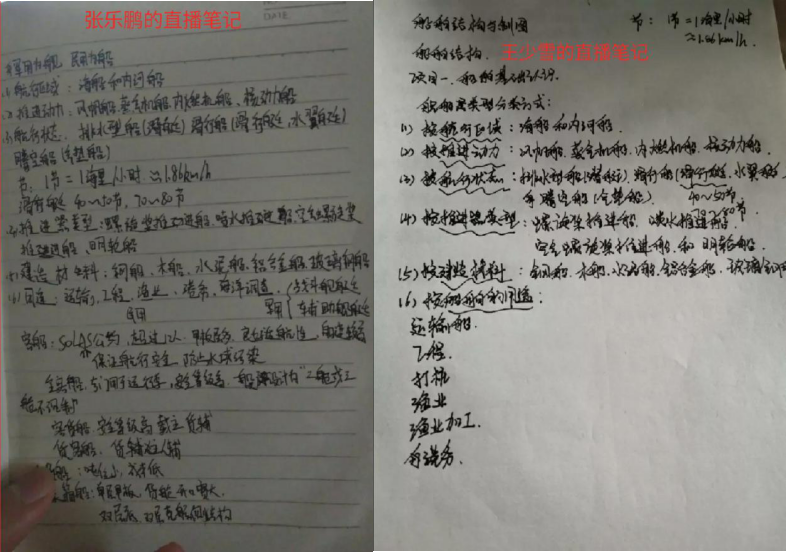 张乐鹏的直播笔记
DATE
军用船舰 民用船
(1)航行区域：海船和内河船
(2)推进动力：风帆船、蒸气机船、内燃机船、核动力船
(3)航行状态：排水型船(潜艇) 滑行船(滑行艇、水翼艇)
腾空船(气垫船)
节：1节=1海里/小时≈1.86km/h
滑行艇 40~50节，70~80节
(4)推进器类型：螺旋桨推进船、喷水推进船、空气螺旋桨
推进船、明轮船
(5)建造材料：钢船、木船、水泥船、铝合金船、玻璃钢船
(6)用途：运输、工程、渔业、港务、海洋调查
民用 军用 战斗舰艇
辅助舰艇
客船：SOLAS公约，超过12人
保证航行安全 防止水域污染
客货船
货客船
双层底
船舶结构与制图
节：1节=1海里/小时
≈1.86km/h
船舶结构
王少雪的直播笔记
项目一、船舶基础认识
船舶类型分类方式：
(1)按航行区域：海船和内河船
(2)按推进动力：风帆船、蒸气机船、内燃机船、核动力船
(3)按航行状态：排水型船(潜艇)、滑行船(滑行艇、水翼艇)
和腾空船(气垫船) 40~50节
(4)按推进器类型：螺旋桨推进船、喷水推进船
空气螺旋桨推进船和明轮船
(5)按建造材料：钢船、木船、水泥船、铝合金船、玻璃钢
(6)按船舶的用途：
运输船
工程
打桩
渔业
渔业加工